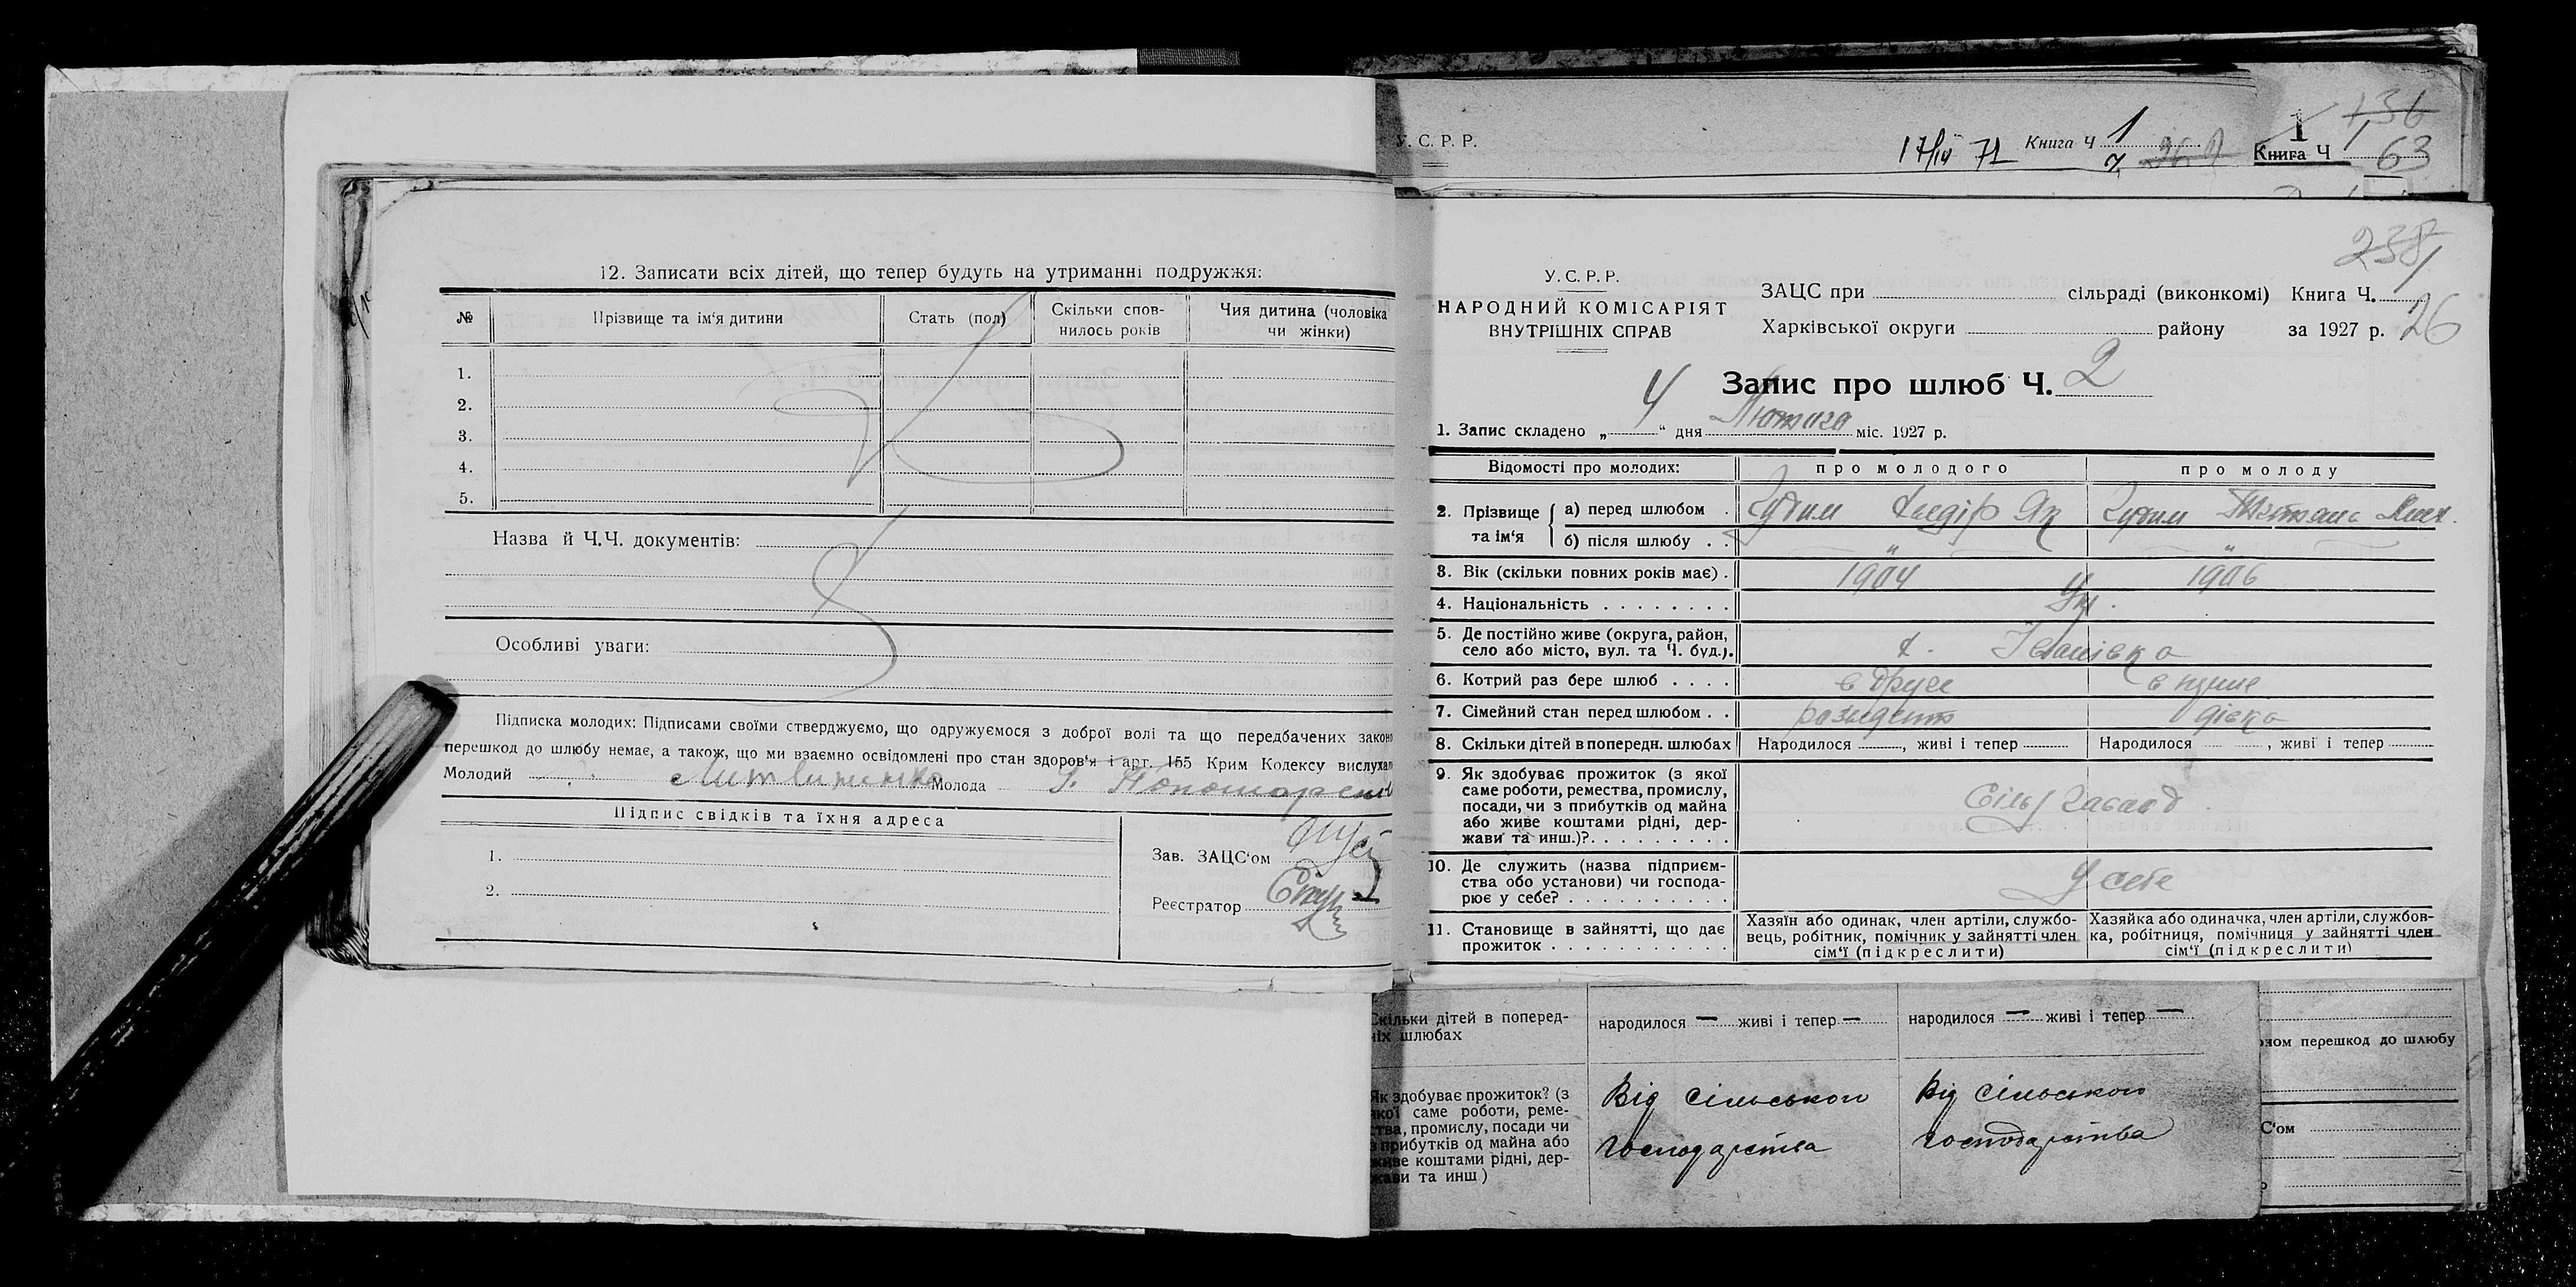 12. Записати всіх дітей, що тепер будуть на утриманні подружжя:
№ Прізвище та ім'я дитини Стать (пол) Скільки спов-нилось років Чия дитина (чоловіка чи жінки)
1.
2.
3.
4.
5.
Назва й Ч.Ч. документів:
Особливі уваги:
Підписка молодих: Підписами своїми стверджуємо, що одружуємося з доброї волі та що передбачених законо
перешкод до шлюбу немає, а також, що ми взаємно освідомлені про стан здоров'я і арт. 155 Крим Кодексу вислуха
Молодий Литвиненко Молода
Підпис свідків та їхня адреса
1.
2.
Зав. ЗАЦС'ом
Реєстратор
У. С. Р. Р.
17/IV 71 Книга Ч 1
Книга Ч 1
136
63
238
У. С. Р. Р.
НАРОДНИЙ КОМІСАРІЯТ
ВНУТРІШНІХ СПРАВ
ЗАЦС при сільраді (виконкомі) Книга Ч.
Харківської округи району за 1927 р. 26
Запис про шлюб Ч. 2
1. Запис складено „4“ дня Лютого міс. 1927 р.
Відомості про молодих: про молодого про молоду
2. Прізвище та ім'я
а) перед шлюбом . Гудим Як Гудим Тетяна Мих.
б) після шлюбу . . " "
3. Вік (скільки повних років має) . 1904 1906
4. Національність . . . . . . . . Укр.
5. Де постійно живе (округа, район,
село або місто, вул. та Ч. буд.). х. Іванівка
6. Котрий раз бере шлюб . . . . в друге в перше
7. Сімейний стан перед шлюбом . . дівка
8. Скільки дітей в попередн. шлюбах Народилося , живі і тепер Народилося , живі і тепер
9. Як здобуває прожиток (з якої
саме роботи, ремества, промислу,
посади, чи з прибутків од майна
або живе коштами рідні, дер-
жави та инш.)?. . . . . . . . .
10. Де служить (назва підприєм-
ства або установи) чи господа-
рює у себе? . . . . . . . . . . У себе
11. Становище в зайнятті, що дає
прожиток . . . . . . . . . . .
Хазяїн або одинак, член артіли, службо-
вець, робітник, помічник у зайнятті член
сім'ї (підкреслити)
Хазяйка або одиначка, член артіли, службов-
ка, робітниця, помічниця у зайнятті член
сім'ї (підкреслити)
Скільки дітей в поперед-
ніх шлюбах
народилося — живі і тепер — народилося — живі і тепер —
Як здобуває прожиток? (з
якої саме роботи, реме-
ства, промислу, посади чи
з прибутків од майна або
живе коштами рідні, дер-
жави та инш)
Від сільського
господарства
Від сільського
господарства
ном перешкод до шлюбу
С'ом